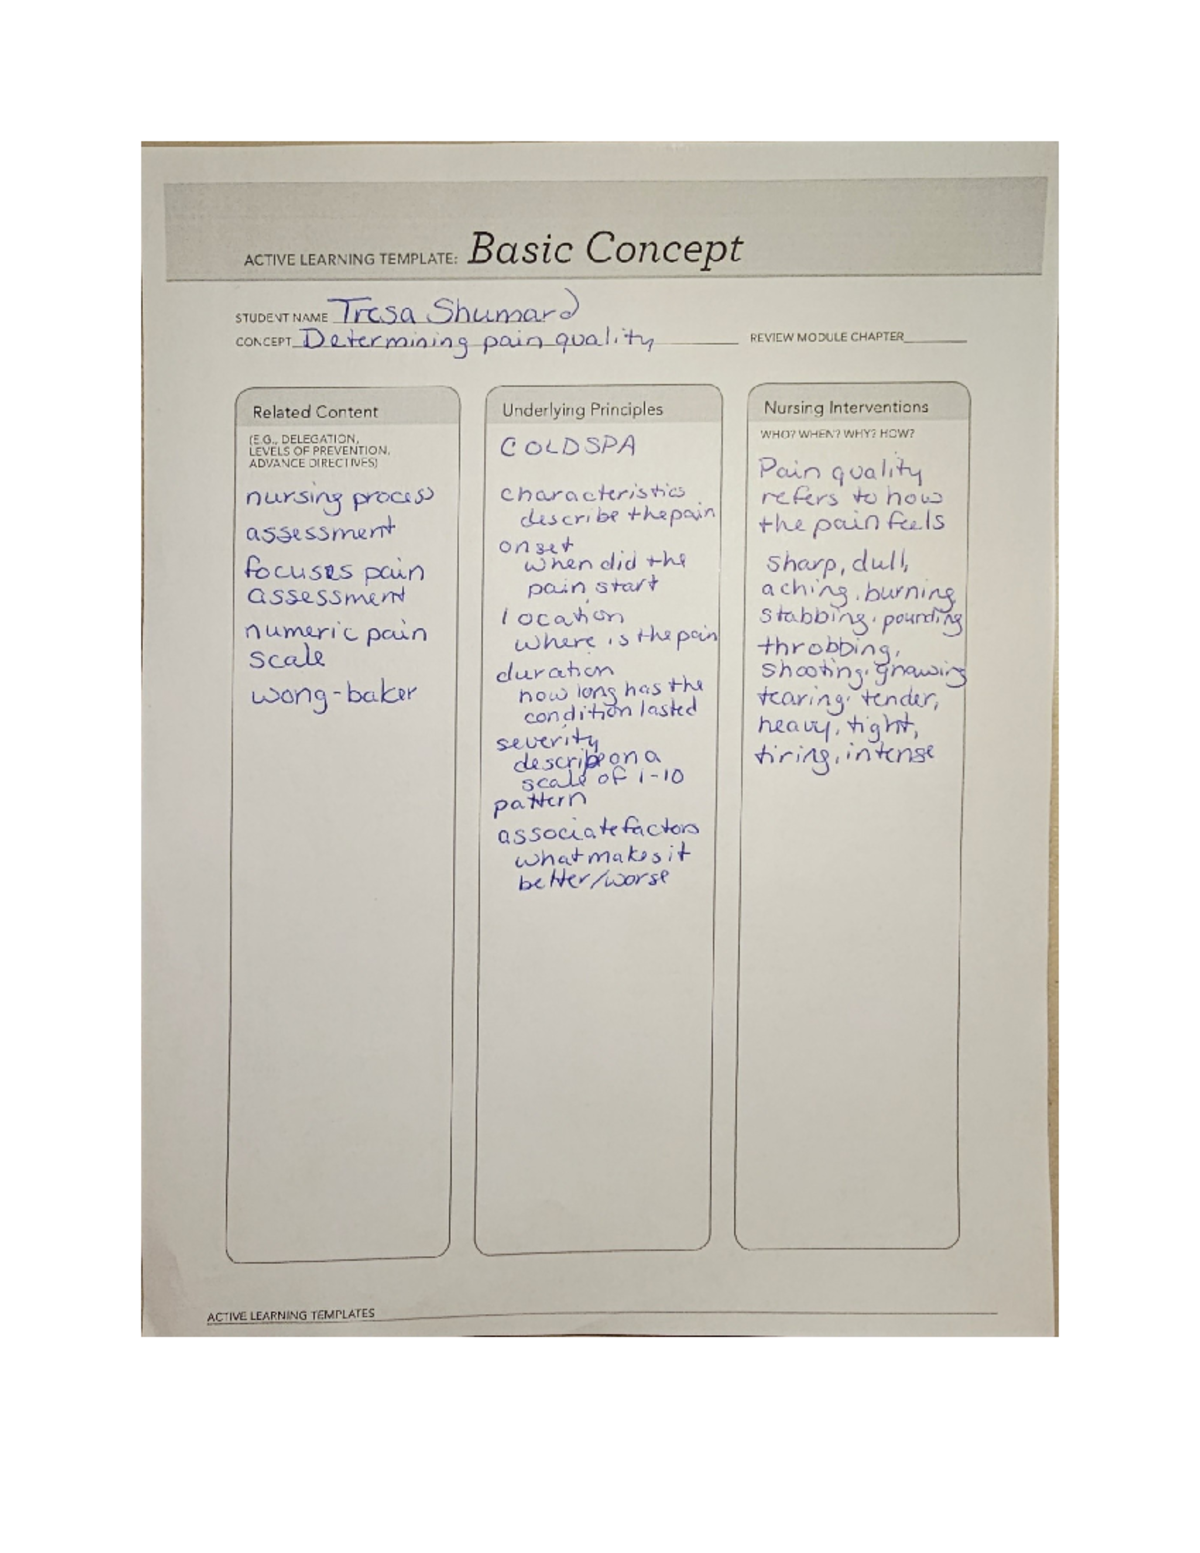 ACTIVE LEARNING TEMPLATE: Basic Concept
STUDENT NAME Tresa Shumard
CONCEPT Determining pain quality
REVIEW MODULE CHAPTER
Related Content
(E.G., DELEGATION,
LEVELS OF PREVENTION,
ADVANCE DIRECTIVES)
nursing process
assessment
focuses pain
assessment
numeric pain
scale
wong-baker
Underlying Principles
COLDSPA
characteristics
describe the pain
onset
when did the
pain start
location
where is the pain
duration
how long has the
condition lasted
severity
describe on a
scale of 1-10
pattern
associate factors
what makes it
better/worse
Nursing Interventions
WHO? WHEN? WHY? HOW?
Pain quality
refers to how
the pain feels
sharp, dull,
aching, burning
stabbing, pounding
throbbing,
shooting, gnawing
tearing, tender,
heavy, tight,
tiring, intense
ACTIVE LEARNING TEMPLATES